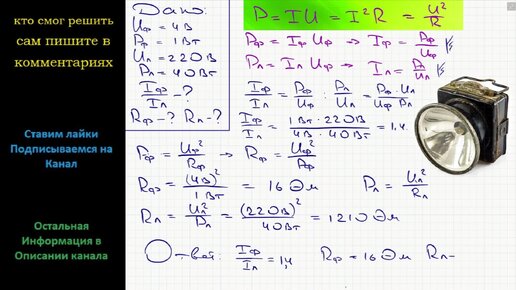 кто смог решить
сам пишите в
комментариях
Ставим лайки
Подписываемся на
Канал
Остальная
Информация в
Описании канала
Дано:
Uф = 4В
Pф = 1Вт
Uл = 220В
Pл = 40Вт
Iф/Iл - ?
Rф - ? Rл - ?
P = IU = I²R = U²/R
Pф = Iф Uф → Iф = Pф/Uф
Pл = Iл Uл → Iл = Pл/Uл
Iф/Iл = Pф/Uф : Pл/Uл = Pф · Uл/Uф Pл
Iф/Iл = 1Вт · 220В/4В · 40Вт = 1,4
Pф = Uф²/Rф → Rф = Uф²/Pф
Rф = (4В)²/1Вт = 16 Ом Pл = Uл²/Rл
Rл = Uл²/Pл = (220В)²/40Вт = 1210 Ом
Ответ: Iф/Iл = 1,4 Rф = 16 Ом Rл =